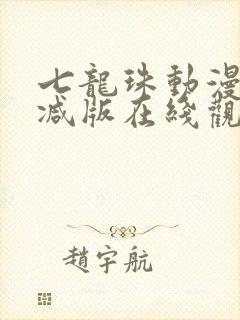 七龍珠動漫
减版在綫觀
趙宇航